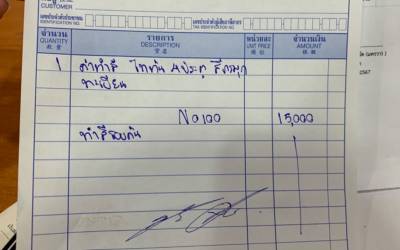 CUSTOMER
เลขประจำตัวประชาชน
IDENTIFICATION NO.
เลขประจำตัวผู้เสียภาษีอากร
TAX IDENTIFICATION NO.
จำนวน รายการ หน่วยละ จำนวนเงิน
QUANTITY DESCRIPTION UNIT PRICE AMOUNT
1 ค่าทำสี ไททัน 4ประตู สีขาวมุก
ทะเบียน
No 100 15,000
ทำสีรอบคัน
2567